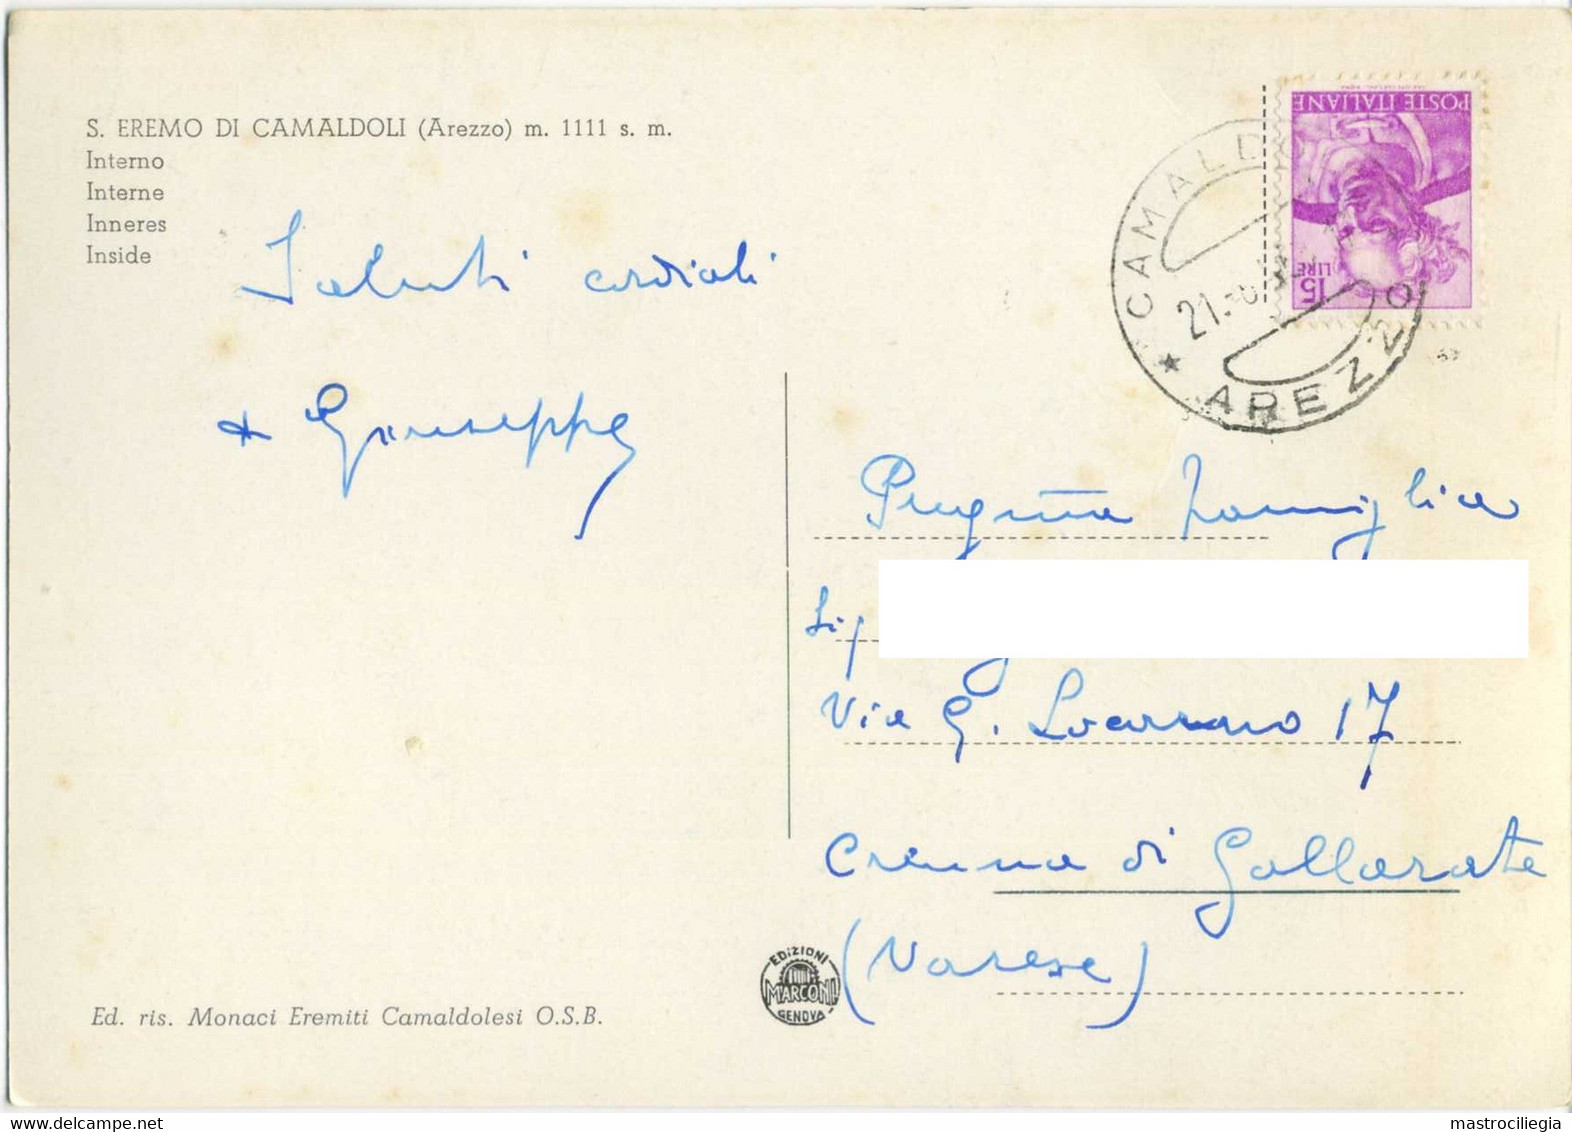 S. EREMO DI CAMALDOLI (Arezzo) m. 1111 s. m.
Interno
Interne
Inneres
Inside
Saluti cordiali
+ Giuseppe
POSTE ITALIANE
15
LIRE
CAMALD
21.
AREZZO
Preg.ma Famiglia
Sig
Via G. Locarno 17
Crenna di Gallarate
(Varese)
EDIZIONI
MARCONI
GENOVA
Ed. ris. Monaci Eremiti Camaldolesi O.S.B.
mastrociliegia